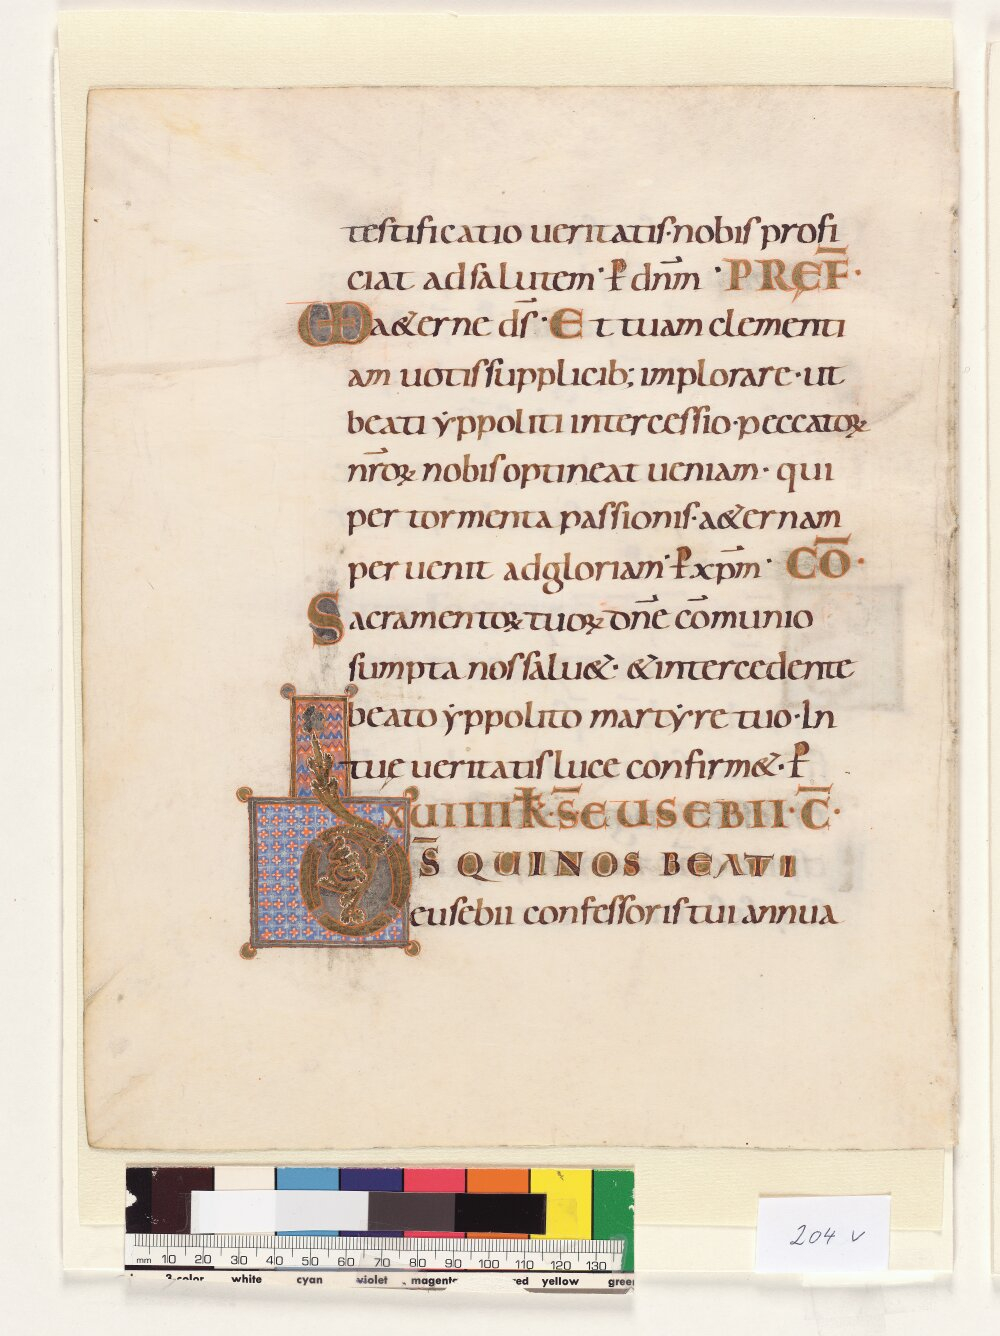 testificatio ueritatis·nobis profi
ciat ad salutem· ꝑ dn̄m · PREF̄·
UD a&erne ds̄· Et tuam clementi
am uotis supplicib; implorare· ut
beati ẏppoliti intercessio·peccatoꝝ
nr̄oꝝ nobis optineat ueniam· qui
per tormenta passionis·a&ernam
peruenit ad gloriam· ꝑ xp̄m· CŌ·
Sacramentoꝝ tuoꝝ dn̄e cōmunio
sumpta nos salu&· &intercedente
beato ẏppolito martẏre tuo· In
tuę ueritatis luce confirm&· ꝑ
XUIIII K̄· S̄ EUSEBII· C̄·
D S̄ QUI NOS BEATI
eusebii confessoris tui annua
204 v
mm 10 20 30 40 50 60 70 80 90 100 110 120 130
3-color white cyan violet magenta red yellow green